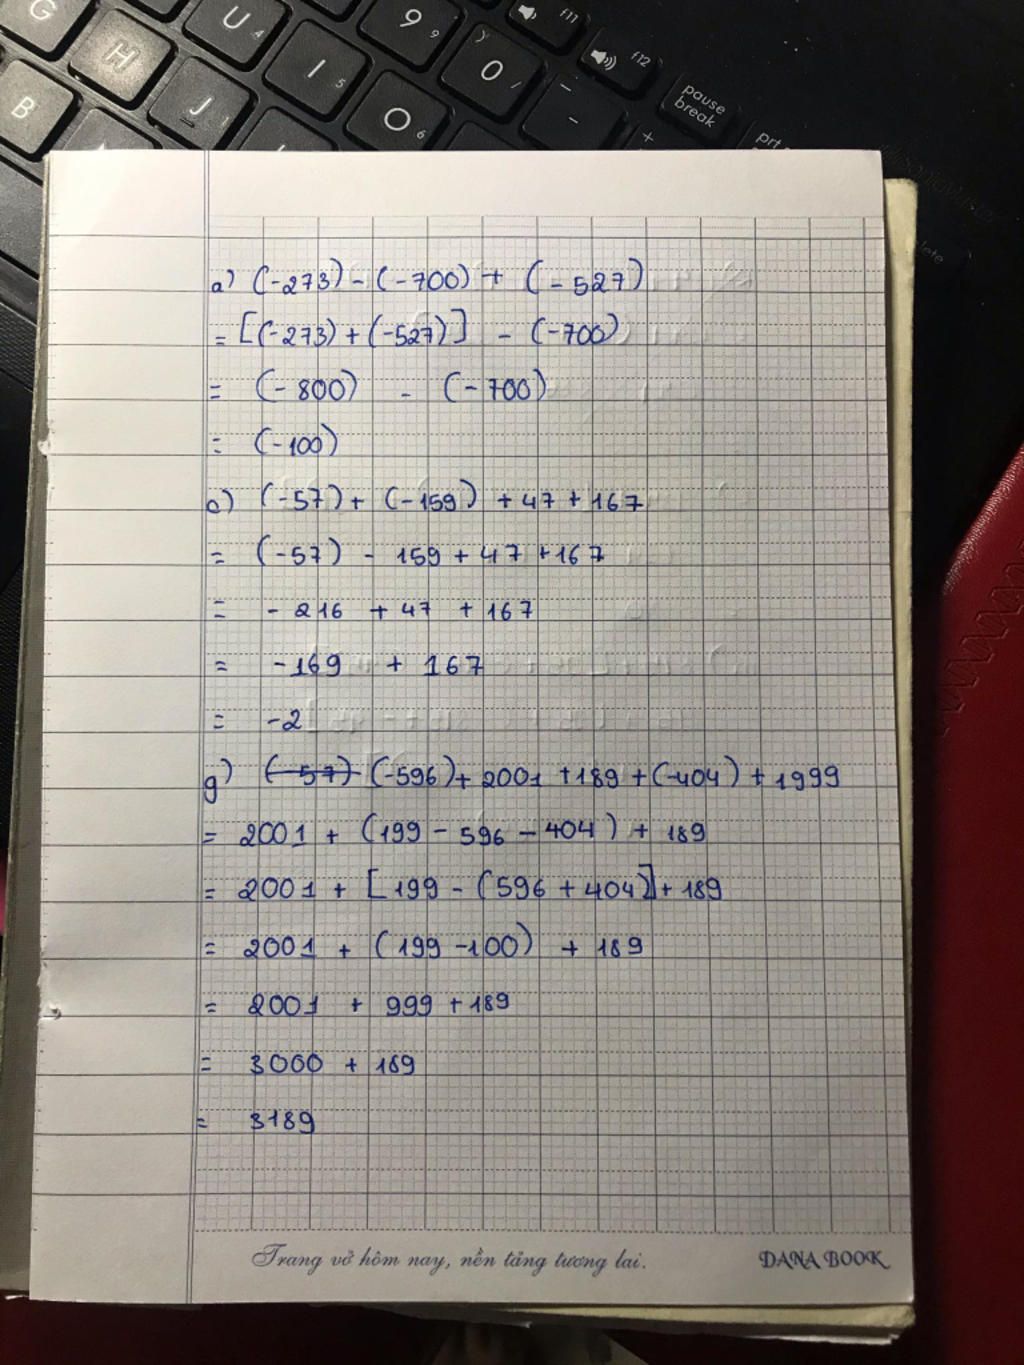 G
U 4
9 9
f11
H
I 5
0 /
f12
B
J 1
O 6
- -
pause
break
+
prt
a) (-273) - (-700) + (-527)
= [(-273) + (-527)] - (-700)
= (-800) - (-700)
= (-100)
c) (-57) + (-159) + 47 + 167
= (-57) - 159 + 47 + 167
= - 216 + 47 + 167
= -169 + 167
= -2
g) (-57) (-596) + 2001 + 189 + (-404) + 1999
= 2001 + (199 - 596 - 404) + 189
= 2001 + [199 - (596 + 404)] + 189
= 2001 + (199 - 100) + 189
= 2001 + 999 + 189
= 3000 + 189
= 3189
Trang vở hôm nay, nền tảng tương lai. DANA BOOK